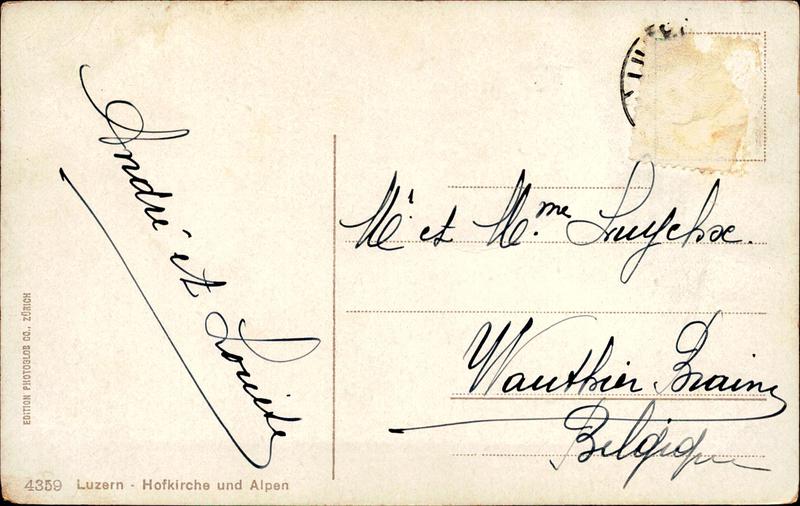 André et Louise
Mr et Mme Luyckx.
Wauthier Braine
Belgique
EDITION PHOTOGLOB CO., ZÜRICH
4359 Luzern - Hofkirche und Alpen